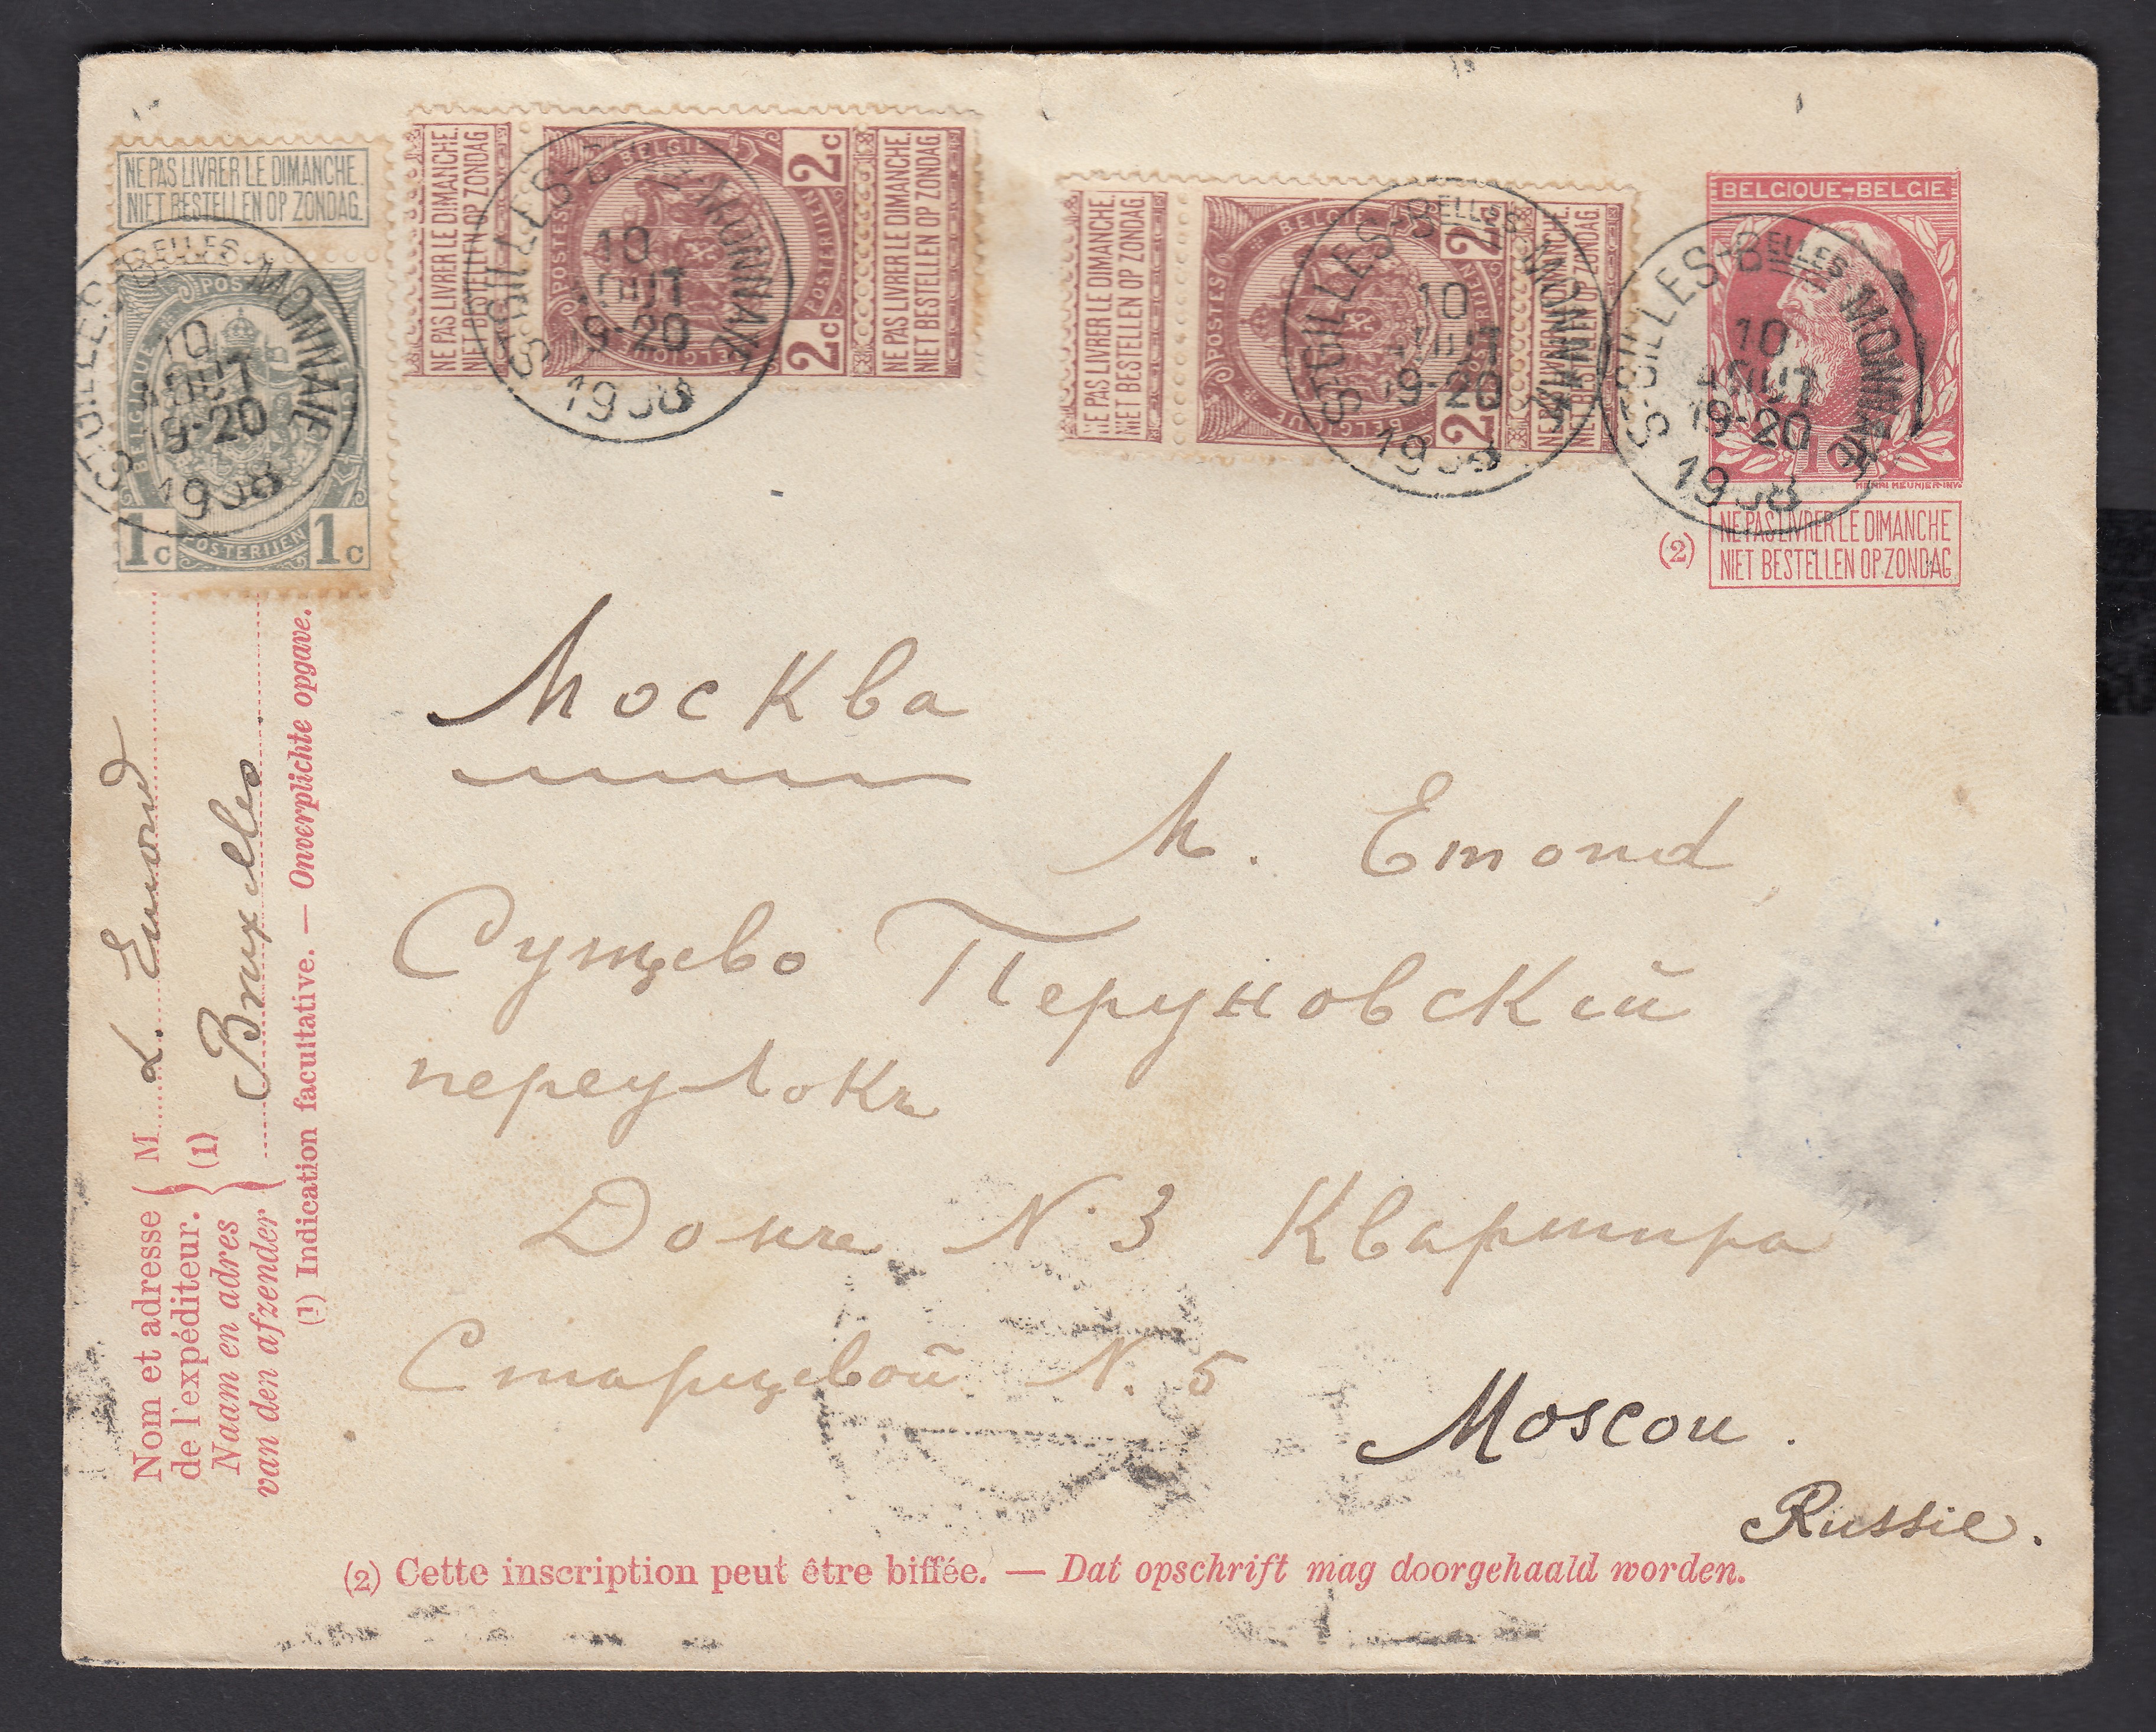 NE PAS LIVRER LE DIMANCHE.
NIET BESTELLEN OP ZONDAG.
POSTERIJEN
1c 1c
NE PAS LIVRER LE DIMANCHE.
NIET BESTELLEN OP ZONDAG
POSTES BELGIE
BELGIQUE POSTERIJEN
2c 2c
NE PAS LIVRER LE DIMANCHE.
NIET BESTELLEN OP ZONDAG.
NE PAS LIVRER LE DIMANCHE.
NIET BESTELLEN OP ZONDAG.
POSTES BELGIE
BELGIQUE
2c 2c
NE PAS LIVRER LE DIMANCHE.
NIET BESTELLEN OP ZONDAG.
BELGIQUE-BELGIE
HENRI MEUNIER-INV.
(2)
NE PAS LIVRER LE DIMANCHE
NIET BESTELLEN OP ZONDAG
ST-GILLES-BELLES MONNAIE
10
AOUT
19-20
1908
ST-GILLES-BELLES MONNAIE
10
AOUT
19-20
1908
ST-GILLES-BELLES MONNAIE
10
AOUT
19-20
1908
ST-GILLES-BELLES MONNAIE
10
AOUT
19-20
1908
Москва
M. Emond
Сущево Перуновскій
переулокъ
Домъ N. 3 Квартира
Старцевой N. 5
Moscou.
Russie.
Nom et adresse
de l'expéditeur.
Naam en adres
van den afzender
(1)
M L. Emond
Bruxelles
(1) Indication facultative. — Onverplichte opgave.
(2) Cette inscription peut être biffée. — Dat opschrift mag doorgehaald worden.